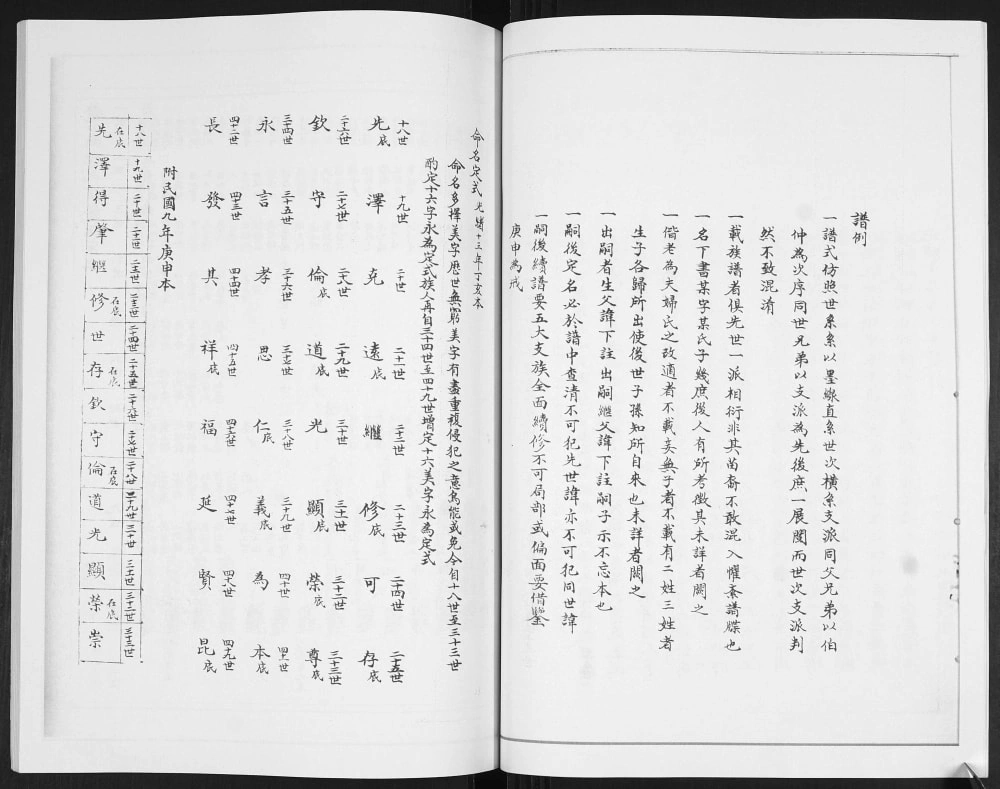 譜例
一譜式仿照世系系以墨線直系世次橫系支派同父兄弟以伯
仲為次序同世兄弟以支派為先後庶一展閱而世次支派判
然不致混淆
一載族譜者俱先世一派相衍非其苗裔不敢混入懼紊譜牒也
一名下書某字某氏子幾庶後人有所考徵其未詳者闕之
一偕老為夫婦氏之改適者不載妾無子者不載有二姓三姓者
生子各歸所出使後世子孫知所自來也未詳者闕之
一出嗣者生父諱下註出嗣繼父諱下註嗣子示不忘本也
一嗣後定名必於譜中查清不可犯先世諱亦不可犯同世諱
一嗣後續譜要五大支族全面續修不可局部或偏面要借鑒
庚申為戒
命名定式 光緒十三年丁亥本
命名多擇美字歷世無窮美字有盡重複侵犯之意烏能或免今自十八世至三十三世
酌定十六字永為定式族人再自三十四世至四十九世增定十六美字永為定式
十八世 十九世 二十世 二十一世 二十二世 二十三世 二十四世 二十五世
先底 澤 克 遠底 繼 修底 可 存底
二十六世 二十七世 二十八世 二十九世 三十世 三十一世 三十二世 三十三世
欽 守 倫底 道底 光 顯底 榮底 尊底
三十四世 三十五世 三十六世 三十七世 三十八世 三十九世 四十世 四十一世
永 言 孝 思 仁底 義底 為 本底
四十二世 四十三世 四十四世 四十五世 四十六世 四十七世 四十八世 四十九世
長 發 其 祥底 福 延 賢 昆底
附民國九年庚申本
十八世 十九世 二十世 二十一世 二十二世 二十三世 二十四世 二十五世 二十六世 二十七世 二十八世 二十九世 三十世 三十一世 三十二世 三十三世
先在底 澤 得 肇 繼 修在底 世 存在底 欽 守 倫在底 道 光 顯 榮在底 崇